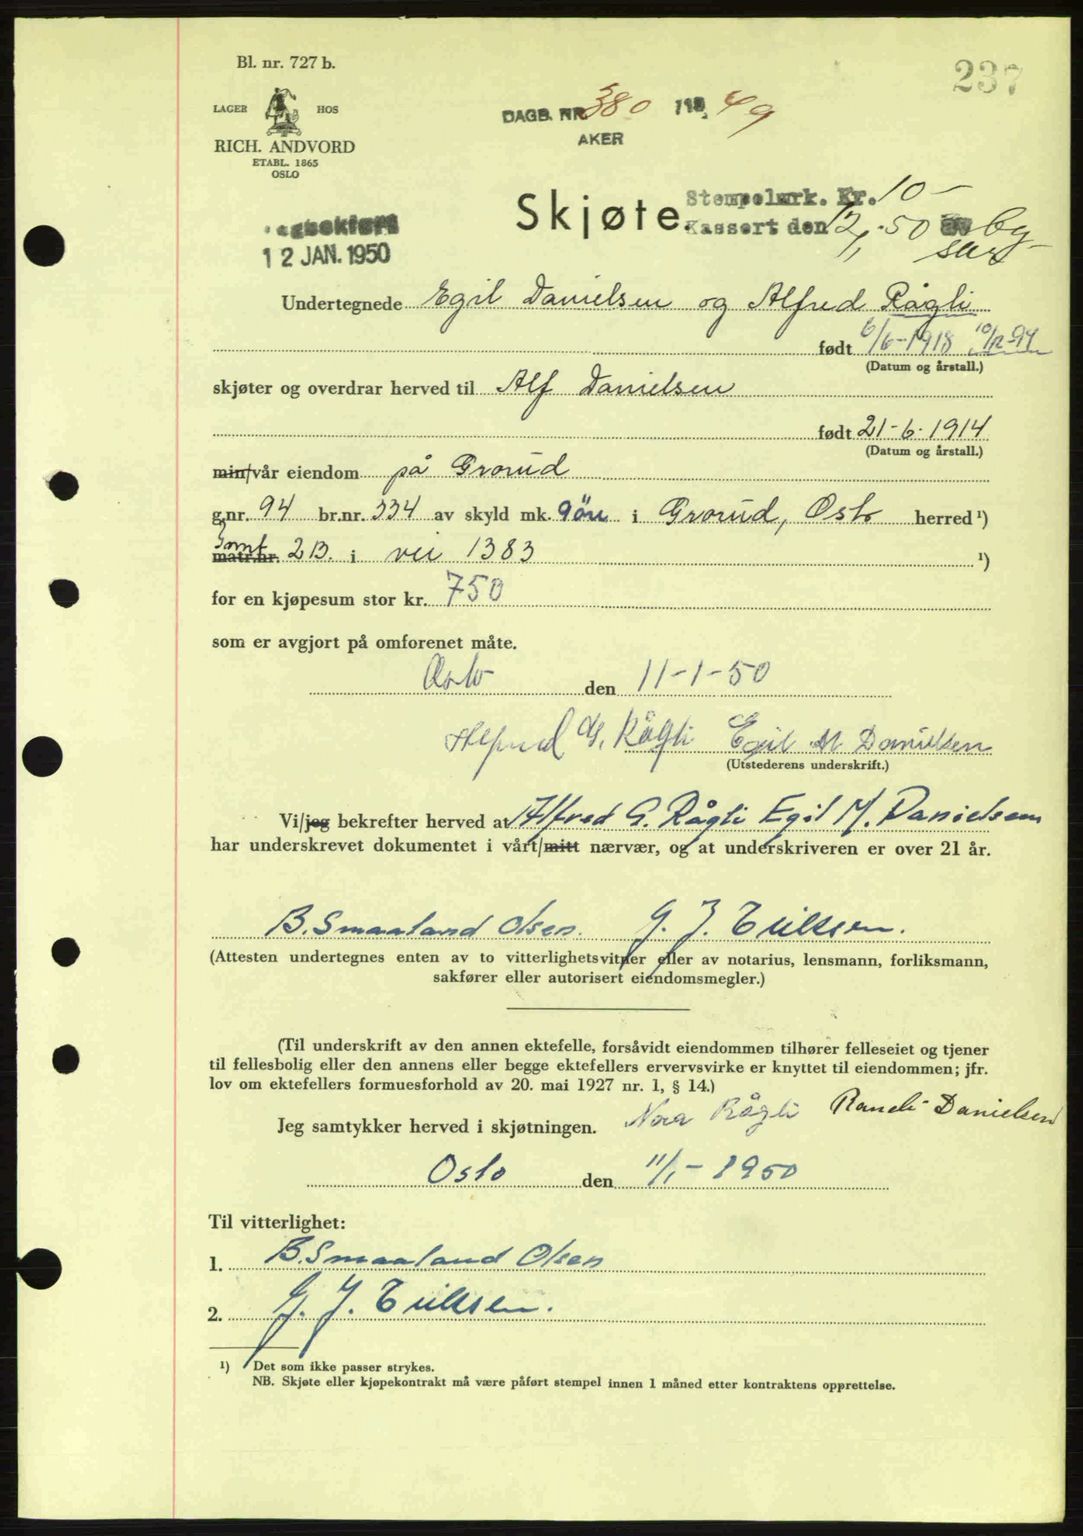 237
Bl. nr. 727 b.
LAGER HOS
RICH. ANDVORD
ETABL. 1865
OSLO
DAGB. NR 380 /19 49
AKER
Dagbokført
12 JAN. 1950
Skjøte.
Stempelmrk. Kr. 10-
Kassert den 12/1.50
Undertegnede Egil Danielsen og Alfred Rågli
født 6/6-1918 10/12-94
(Datum og årstall.)
skjøter og overdrar herved til Alf Danielsen
født 21-6-1914
(Datum og årstall.)
min/vår eiendom på Grorud
g.nr. 94 br.nr. 334 av skyld mk. 9 øre i Grorud, Oslo herred ¹)
matr.nr. Tomt 2B. i vei 1383 ¹)
for en kjøpesum stor kr. 750
som er avgjort på omforenet måte.
Oslo den 11-1-50
Alfred G. Rågli Egil M Danielsen
(Utstederens underskrift.)
Vi/jeg bekrefter herved at Alfred G. Rågli Egil M. Danielsen
har underskrevet dokumentet i vårt/mitt nærvær, og at underskriveren er over 21 år.
B. Smaaland Olsen. G. J. Eriksen.
(Attesten undertegnes enten av to vitterlighetsvitner eller av notarius, lensmann, forliksmann,
sakfører eller autorisert eiendomsmegler.)
(Til underskrift av den annen ektefelle, forsåvidt eiendommen tilhører felleseiet og tjener
til fellesbolig eller den annens eller begge ektefellers ervervsvirke er knyttet til eiendommen; jfr.
lov om ektefellers formuesforhold av 20. mai 1927 nr. 1, § 14.)
Jeg samtykker herved i skjøtningen. Nora Rågli Randi Danielsen
Oslo den 11/1-1950
Til vitterlighet:
1. B. Smaaland Olsen
2. G. J. Eriksen.
¹) Det som ikke passer strykes.
NB. Skjøte eller kjøpekontrakt må være påført stempel innen 1 måned etter kontraktens opprettelse.